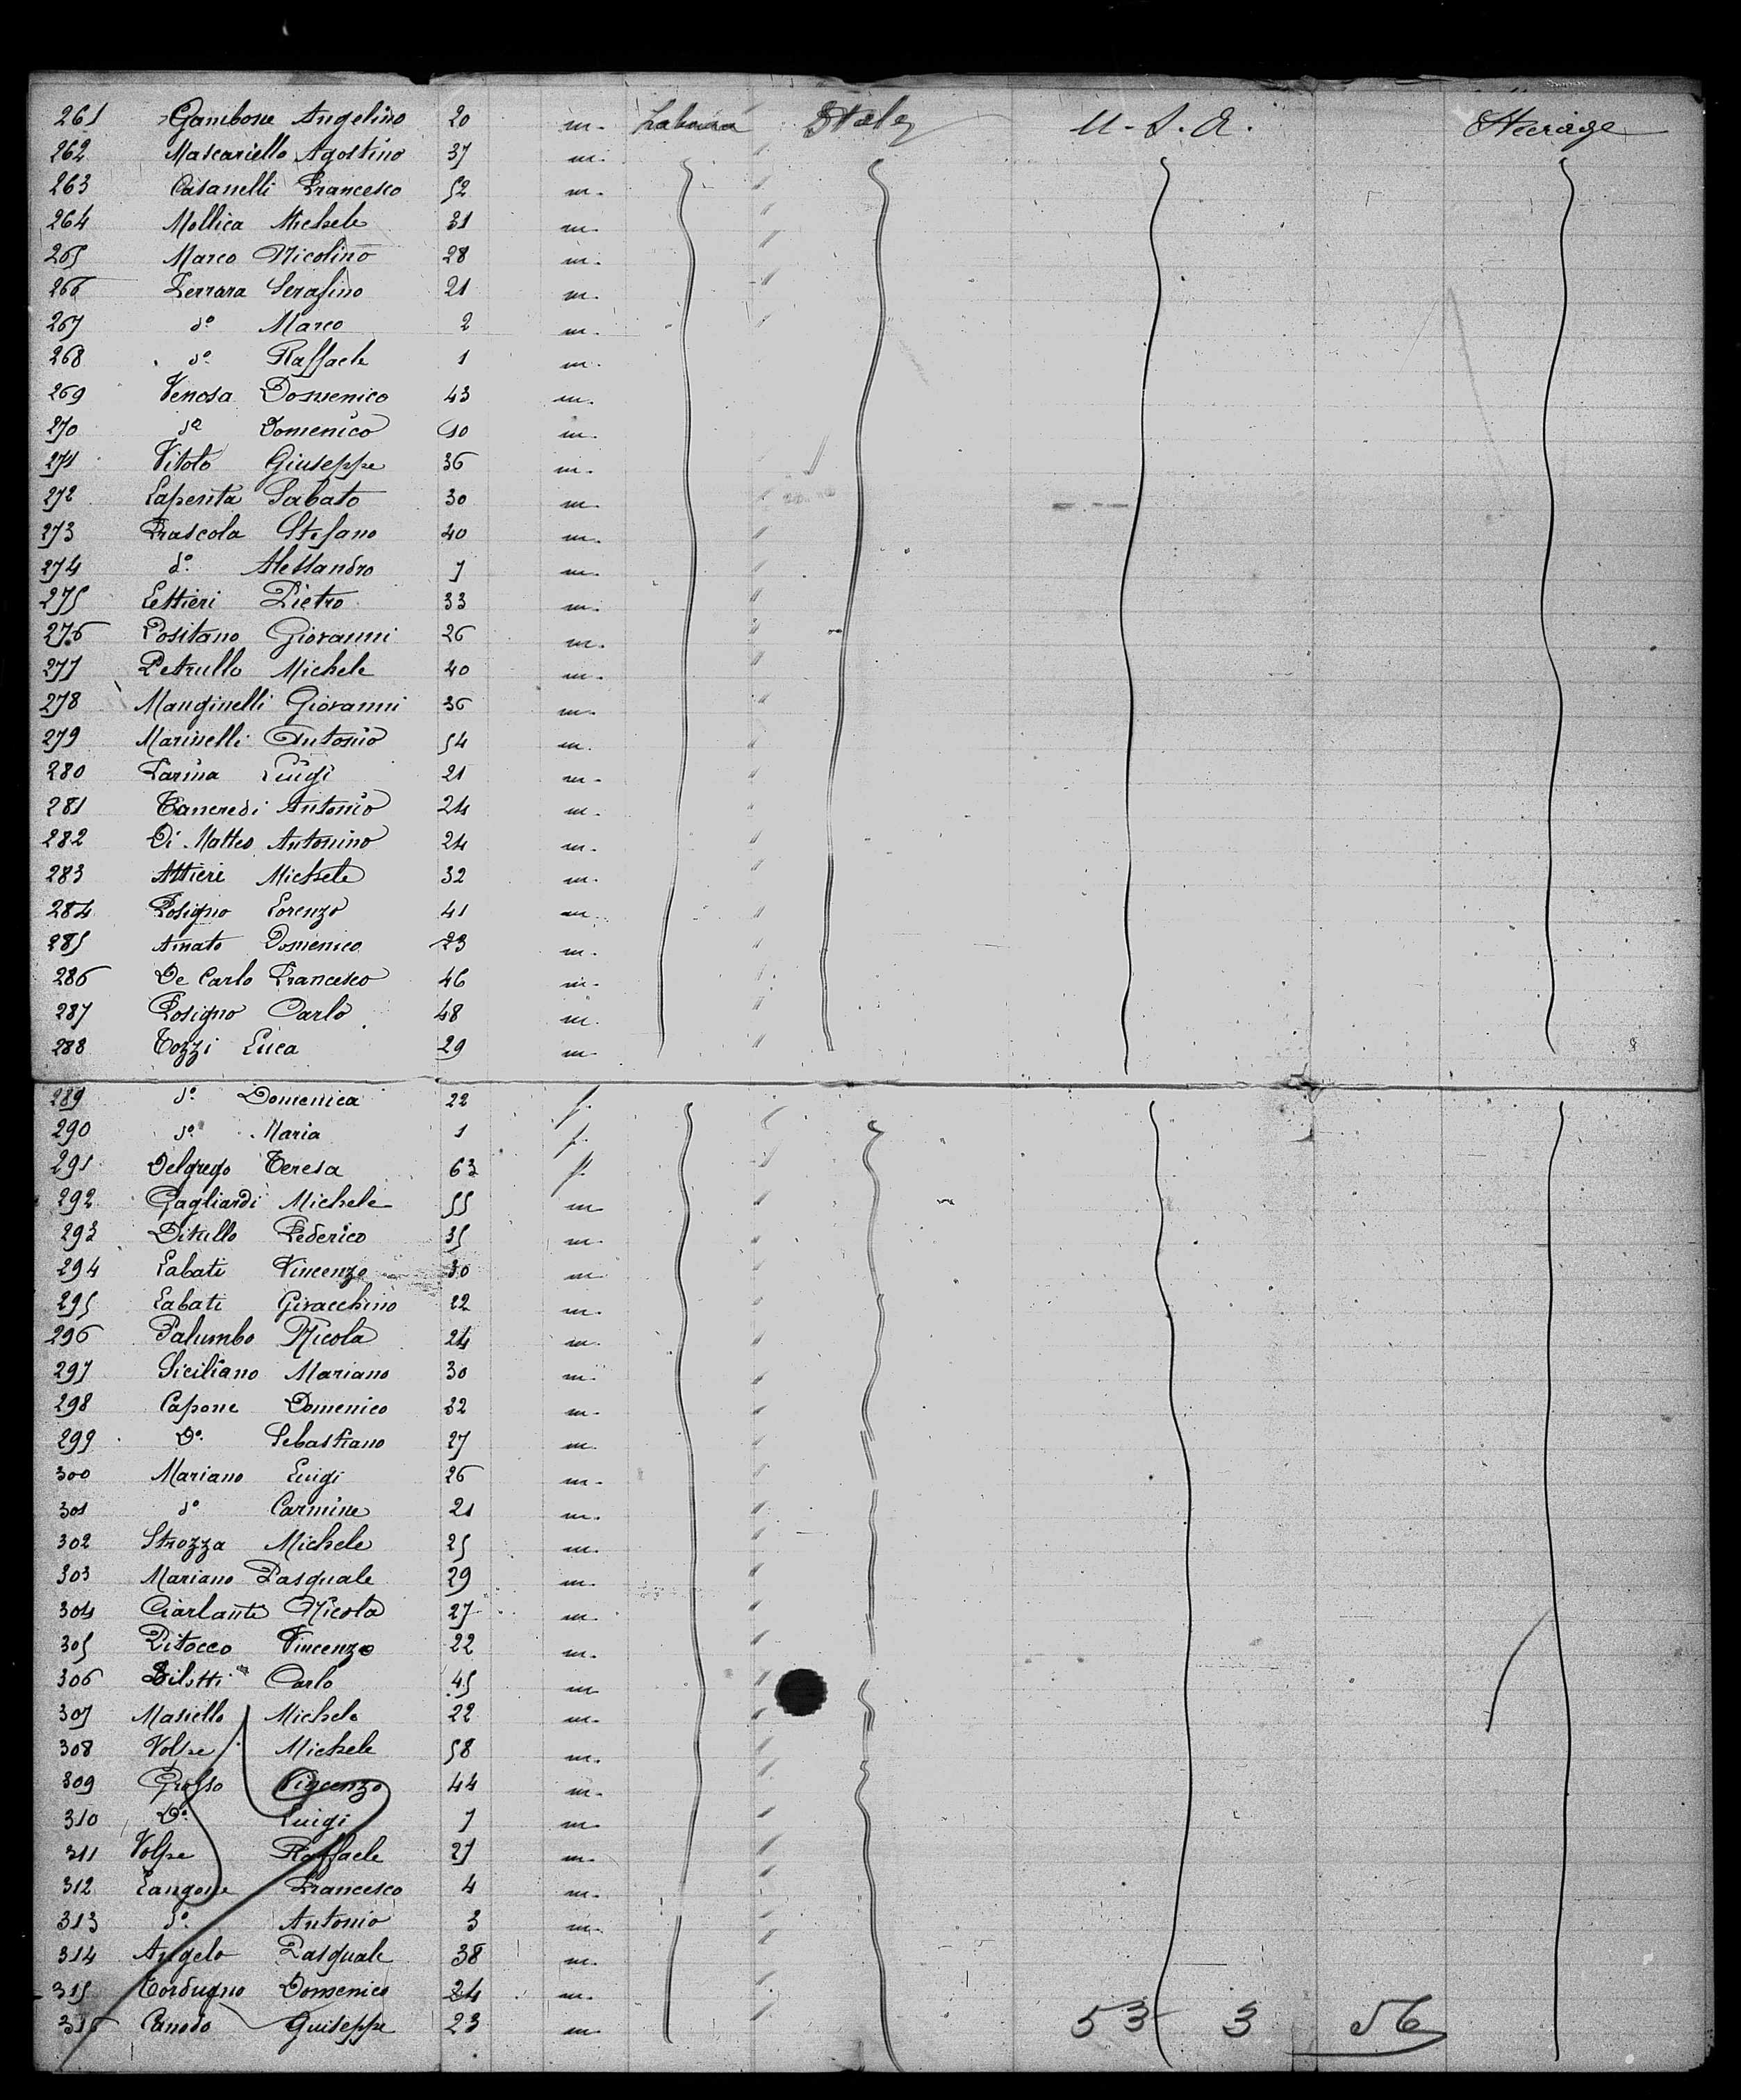 261 Gambone Angelino 20 m. Laborer Italy U.S.A. Steerage
262 Mascariello Agostino 37 m.
263 Casanelli Francesco 52 m.
264 Mollica Michele 31 m.
265 Marco Nicolino 28 m.
266 Ferrara Serafino 21 m.
267 do Marco 2 m.
268 do Raffaele 1 m.
269 Venosa Domenico 43 m.
270 do Domenico 10 m.
271 Vitolo Giuseppe 36 m.
272 Laperita Sabato 30 m.
273 Frascola Stefano 40 m.
274 do Alessandro 7 m.
275 Lettieri Pietro 33 m.
276 Positano Giovanni 26 m.
277 Petrullo Michele 40 m.
278 Manginelli Giovanni 36 m.
279 Marinelli Antonio 54 m.
280 Farina Luigi 21 m.
281 Tancredi Antonio 24 m.
282 Di Matteo Antonino 24 m.
283 Altieri Michele 32 m.
284 Rosigno Lorenzo 41 m.
285 Amato Domenico 23 m.
286 De Carlo Francesco 46 m.
287 Rosigno Carlo 48 m.
288 Tozzi Luca 29 m.
289 do Domenica 22 f.
290 do Maria 1 f.
291 Delgrego Teresa 63 f.
292 Gagliardi Michele 55 m
293 Ditullo Federico 35 m.
294 Labati Vincenzo 30 m
295 Labati Gioacchino 22 m.
296 Palumbo Nicola 24 m.
297 Siciliano Mariano 30 m.
298 Capone Domenico 32 m.
299 Do Sebastiano 27 m.
300 Mariano Luigi 26 m.
301 do Carmine 21 m.
302 Strozza Michele 25 m.
303 Mariano Pasquale 29 m.
304 Ciarlante Nicola 27 m.
305 Ditocco Vincenzo 22 m.
306 Bilotti Carlo 45 m
307 Masiello Michele 22 m.
308 Volpe Michele 58 m.
309 Grosso Vincenzo 44 m.
310 Do Luigi 7 m.
311 Volpe Raffaele 27 m.
312 Langone Francesco 4 m.
313 do Antonio 3 m.
314 Angelo Pasquale 38 m.
315 Cordugno Domenico 24 m.
316 Giuseppe 23 m. 53 3 56